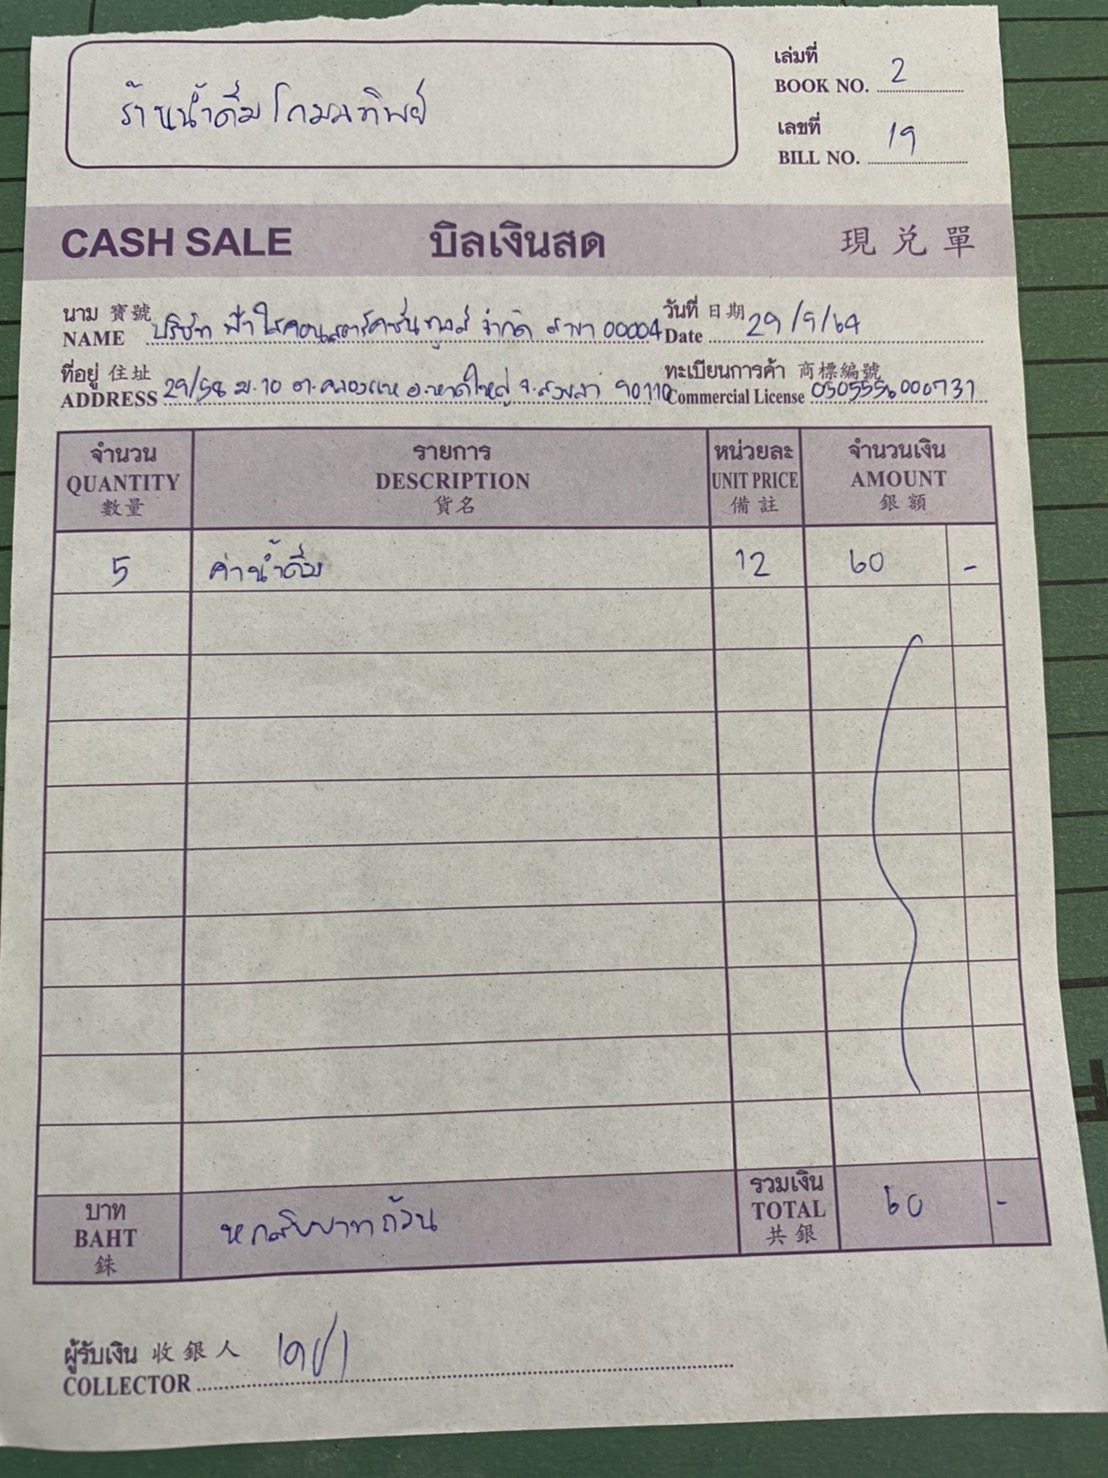 ร้านน้ำดื่มโกมลทิพย์
เล่มที่
BOOK NO. 2
เลขที่
BILL NO. 19
CASH SALE บิลเงินสด 現兑單
นาม 寶號
NAME บริษัท ฟ้าใสคอนสตรัคชั่น จำกัด สาขา 00004
วันที่ 日期
Date 29/9/64
ที่อยู่ 住址
ADDRESS 29/58 ม.10 ต.คลองแห อ.หาดใหญ่ จ.สงขลา 90110
ทะเบียนการค้า 商標編號
Commercial License
จำนวน รายการ หน่วยละ จำนวนเงิน
QUANTITY DESCRIPTION UNIT PRICE AMOUNT
數量 貨名 備註 銀額
5 ค่าน้ำดื่ม 12 60 -
บาท
BAHT
銖
หกสิบบาทถ้วน
รวมเงิน
TOTAL
共銀
60 -
ผู้รับเงิน 收銀人
COLLECTOR